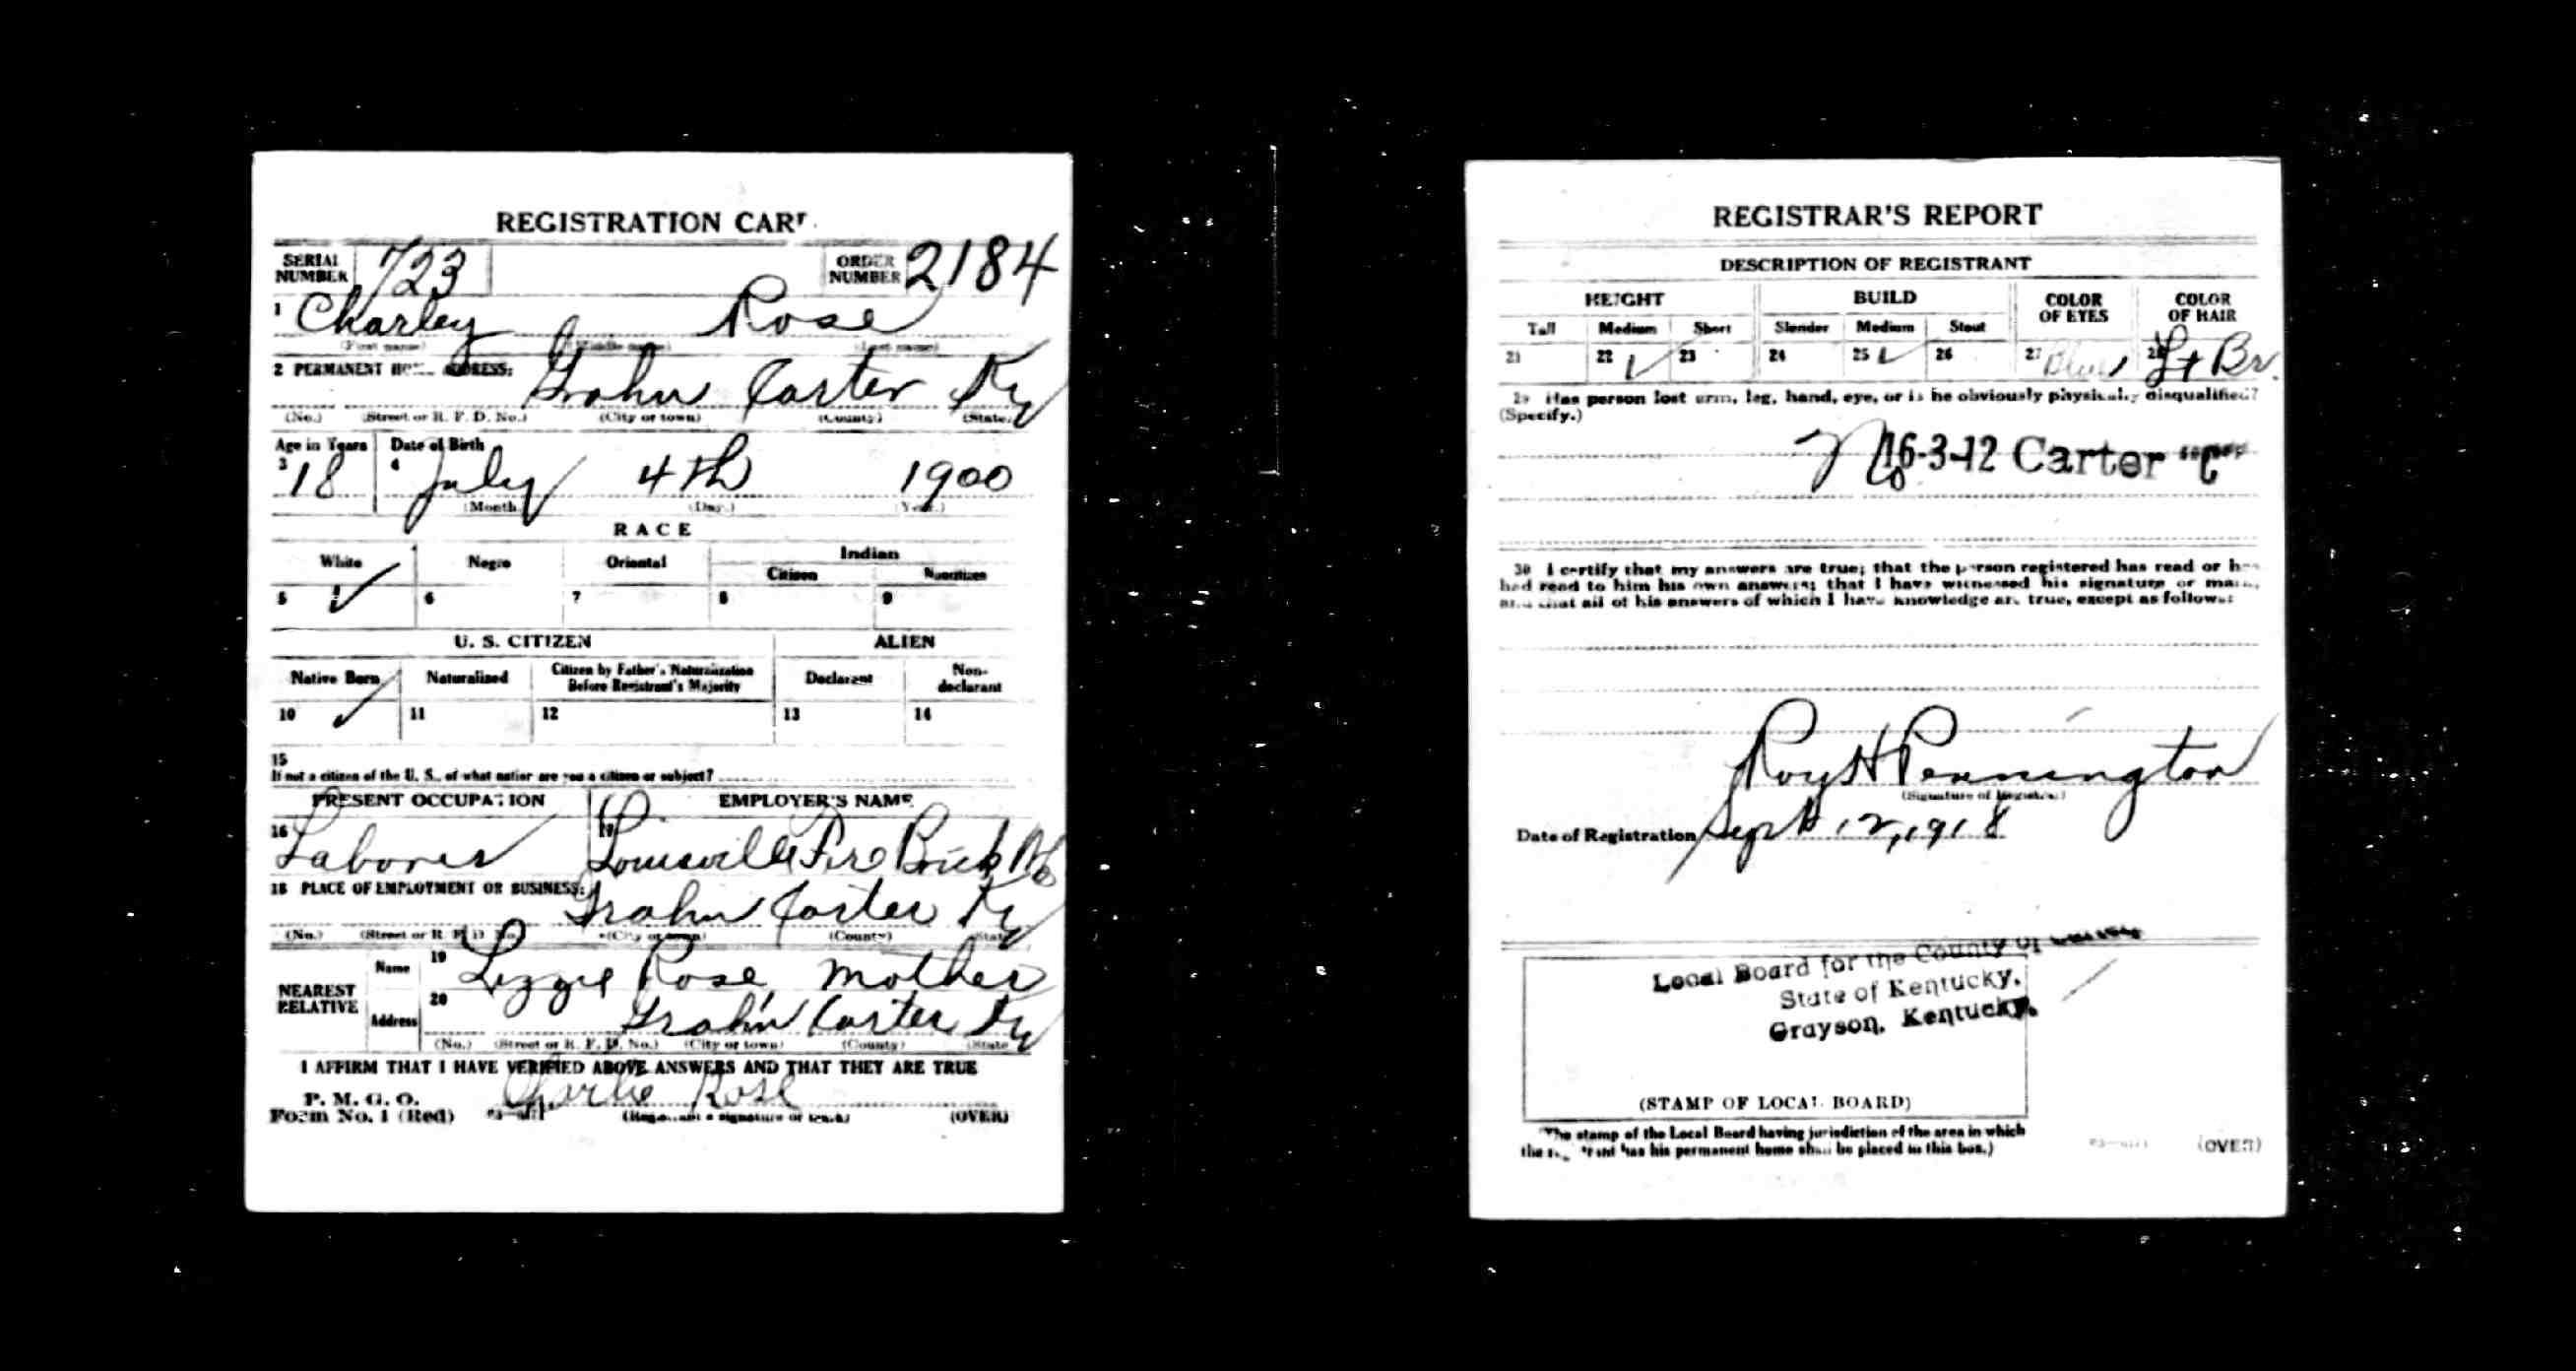 REGISTRATION CAR
SERIAL NUMBER 723 ORDER NUMBER 2184
1 Charley Rose
(First name) (Middle name) (Last name)
2 PERMANENT HOME ADDRESS: Grahn Carter Ky
(No.) (Street or R. F. D. No.) (City or town) (County) (State)
Age in Years Date of Birth
3 18 4 July 4th 1900
(Month.) (Day.) (Year.)
RACE
White Negro Oriental Indian
Citizen Noncitizen
5 ✓ 6 7 8 9
U. S. CITIZEN ALIEN
Native Born Naturalized Citizen by Father's Naturalization Before Registrant's Majority Declarant Non-declarant
10 ✓ 11 12 13 14
15
If not a citizen of the U. S., of what nation are you a citizen or subject?
PRESENT OCCUPATION EMPLOYER'S NAME
16 Laborer Louisville Fire Brick
18 PLACE OF EMPLOYMENT OR BUSINESS: Grahn Carter Ky
(No.) (Street or R. F. D. No.) (City or town) (County) (State)
NEAREST RELATIVE Name 19 Lizzie Rose, mother
Address 20 Grahn Carter Ky
(No.) (Street or R. F. D. No.) (City or town) (County) (State)
I AFFIRM THAT I HAVE VERIFIED ABOVE ANSWERS AND THAT THEY ARE TRUE
P. M. G. O.
Form No. 1 (Red) Charlie Rose
(Registrant's signature or mark) (OVER)
REGISTRAR'S REPORT
DESCRIPTION OF REGISTRANT
HEIGHT BUILD COLOR OF EYES COLOR OF HAIR
Tall Medium Short Slender Medium Stout
21 22 ✓ 23 24 25 ✓ 26 27 Blue 28 Lt Br.
29 Has person lost arm, leg, hand, eye, or is he obviously physically disqualified?
(Specify.)
No 16-3-12 Carter "C"
30 I certify that my answers are true; that the person registered has read or has
had read to him his own answers; that I have witnessed his signature or mark,
and that all of his answers of which I have knowledge are true, except as follows:
Roy H Pennington
(Signature of Registrar)
Date of Registration Sept 12, 1918
Local Board for the County of
State of Kentucky,
Grayson, Kentucky.
(STAMP OF LOCAL BOARD)
(The stamp of the Local Board having jurisdiction of the area in which
the registrant has his permanent home shall be placed in this box.)
(OVER)